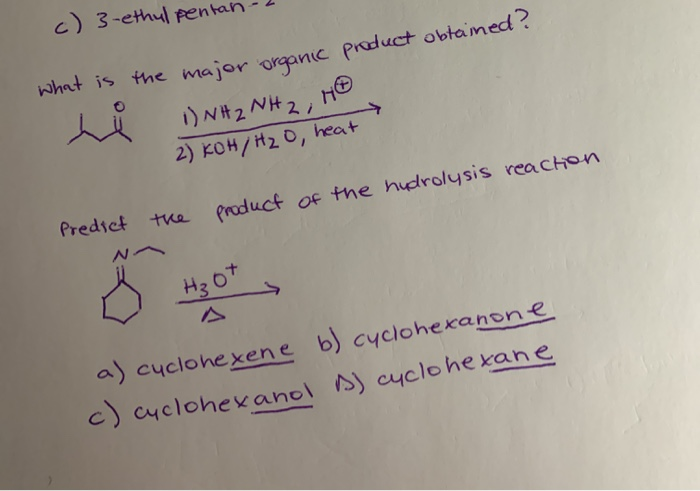 c) 3-ethyl pentan-2
what is the major organic product obtained?
O
1) NH2 NH2, H⊕
2) KOH/H2O, heat
Predict the product of the hydrolysis reaction
N
H3O+
Δ
a) cyclohexene b) cyclohexanone
c) cyclohexanol D) cyclohexane